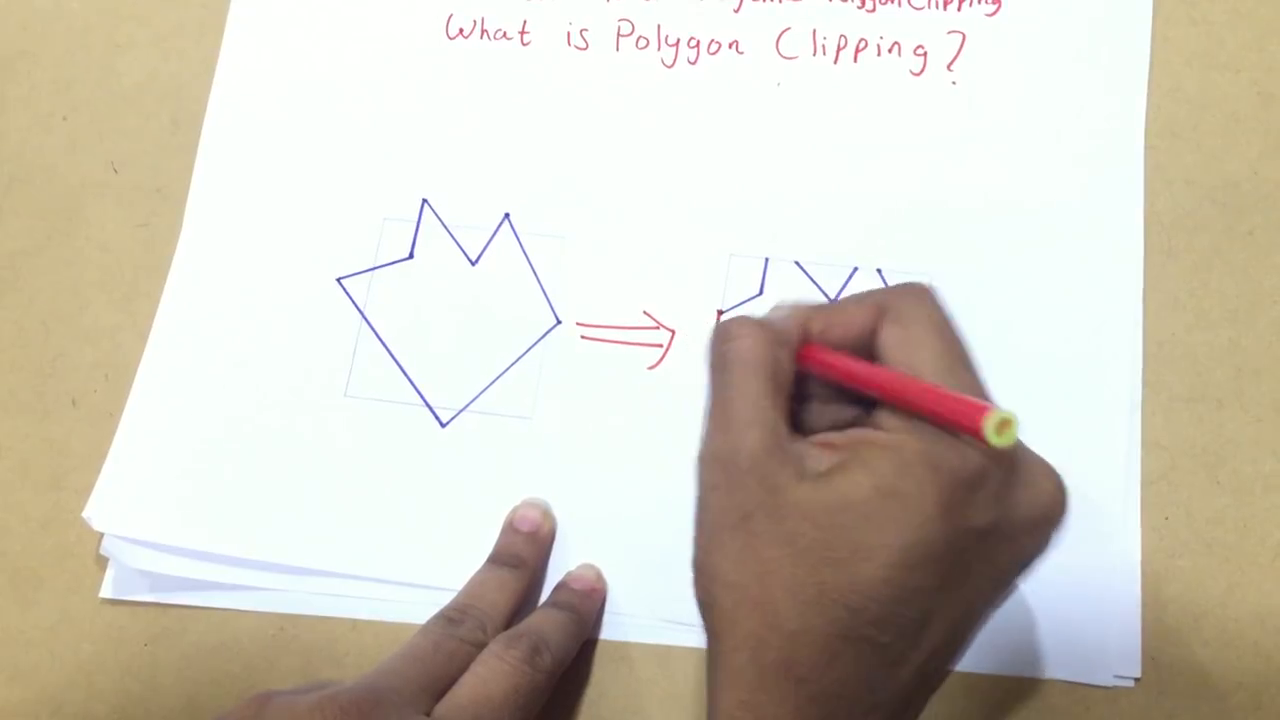 Polygon Clipping
What is Polygon Clipping?